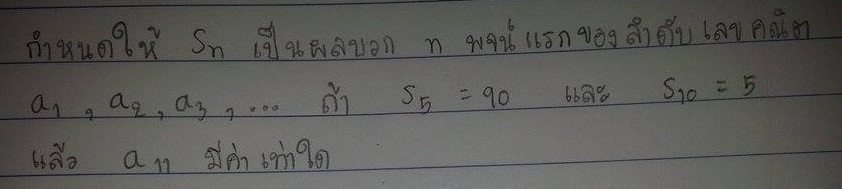 กำหนดให้ Sn เป็นผลบวก n พจน์แรกของลำดับเลขคณิต
a1, a2, a3, ... ถ้า S5 = 90 และ S10 = 5
แล้ว a11 มีค่าเท่าใด